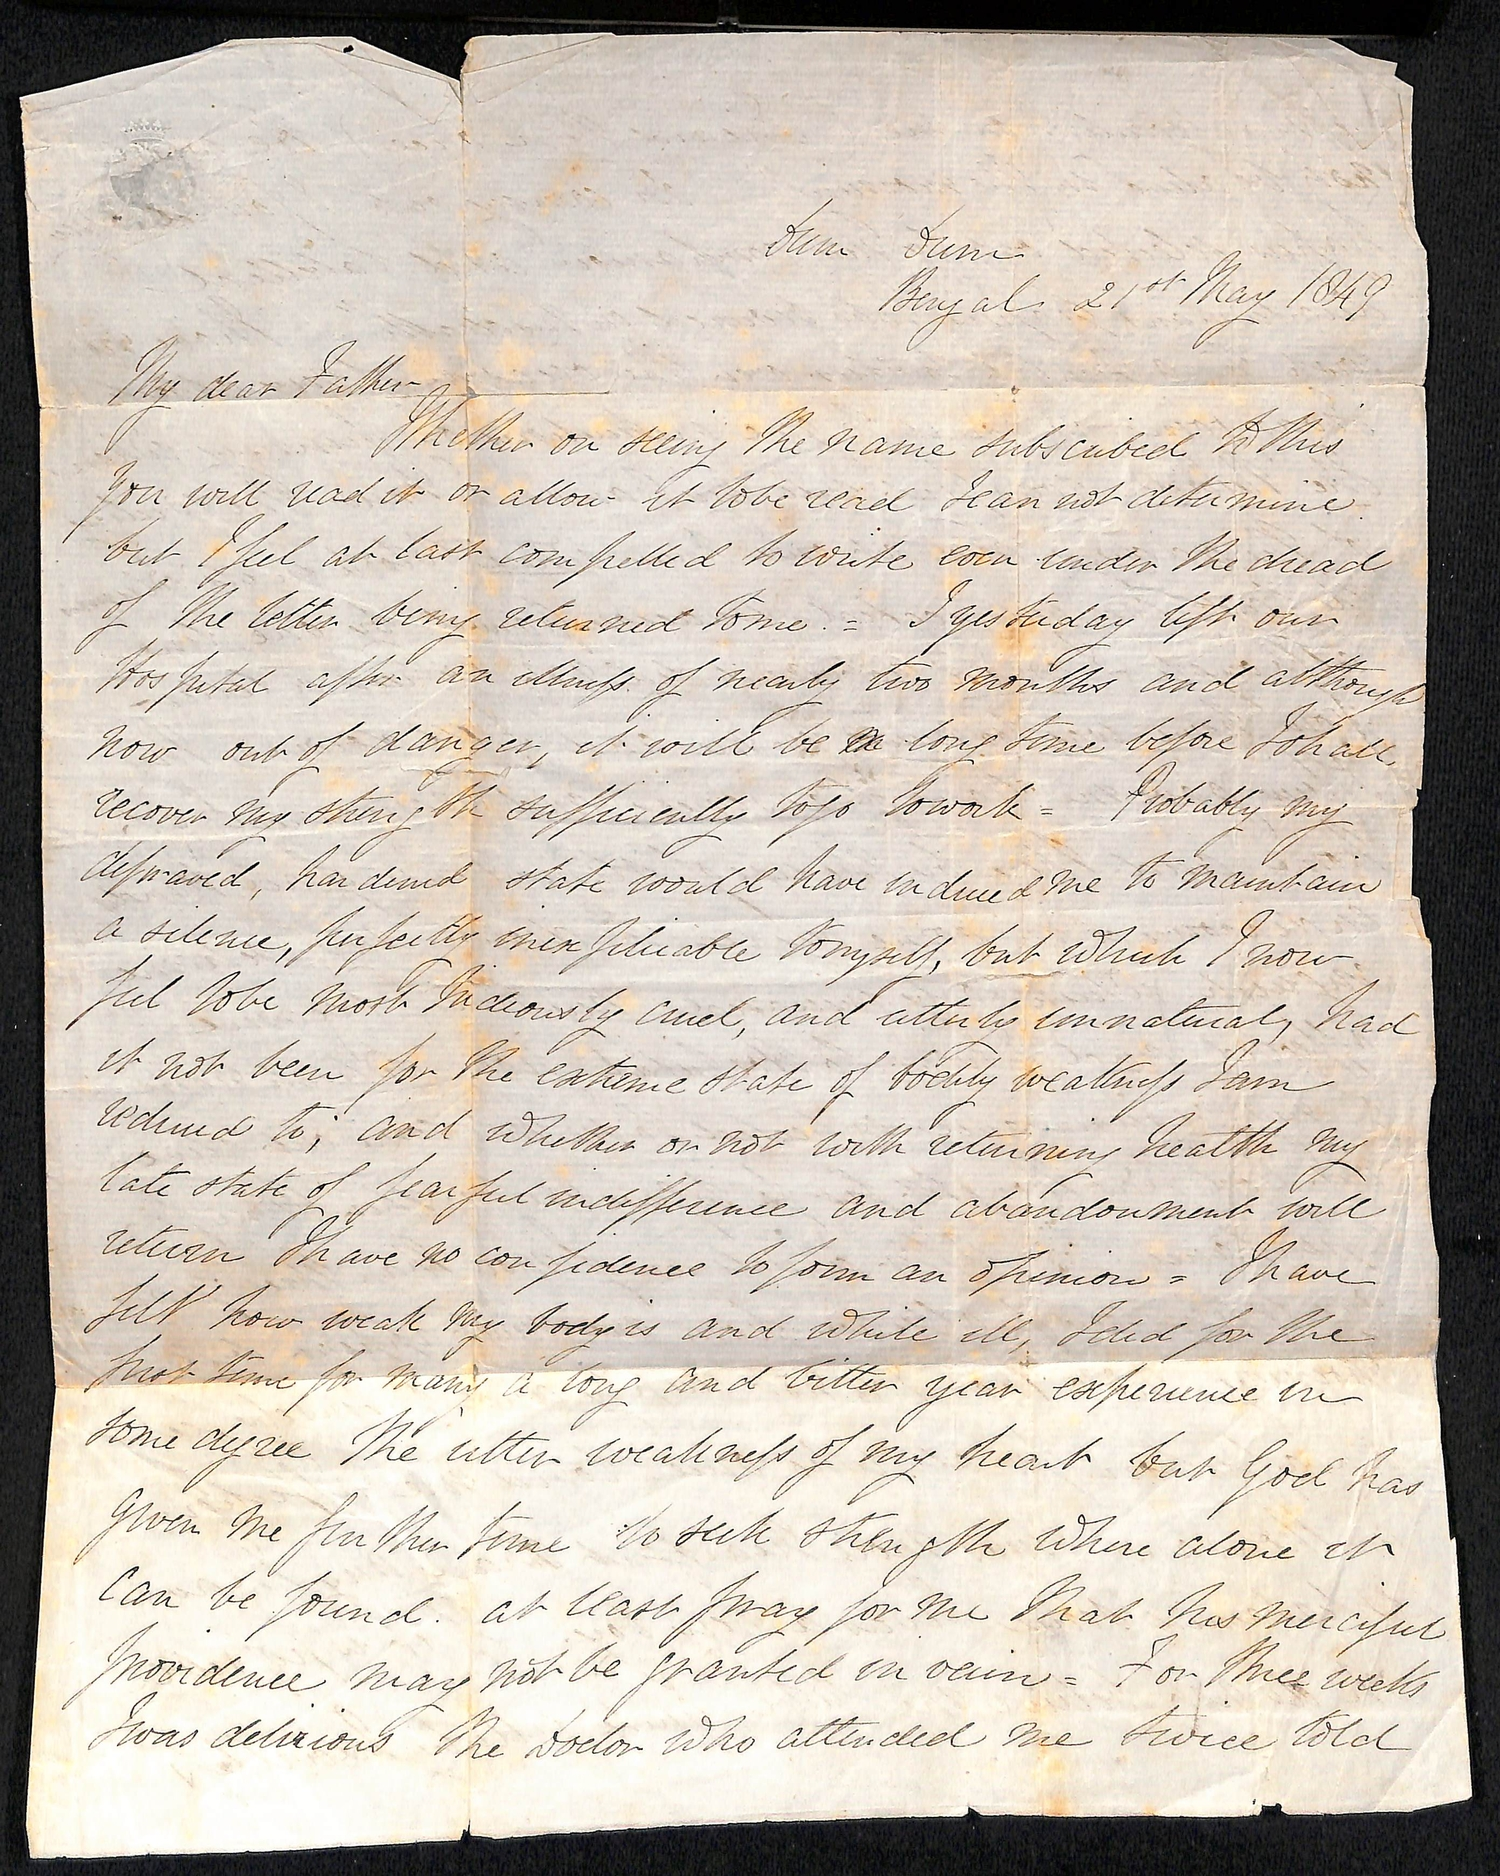 Dum Dum
Bengal 21st May 1849
My dear Father
Whether on seeing the name subscribed to this
you will read it or allow it to be read I can not determine
but I feel at last compelled to write even under the dread
of the letter being returned to me. = I yesterday left our
Hospital after an illness of nearly two months and although
now out of danger, it will be a long time before I shall
recover my strength sufficiently to go to work = Probably my
depraved, hardened state would have induced me to maintain
a silence, perfectly inexplicable to myself, but which I now
feel to be most hideously cruel, and utterly unnatural, had
it not been for the extreme state of bodily weakness I am
reduced to; and whether or not with returning health my
late state of fearful indifference and abandonment will
return I have no confidence to form an opinion = I have
felt how weak my body is and while ill, I did for the
first time for many a long and bitter year experience in
some degree the utter weakness of my heart but God has
given me further time to seek strength where alone it
can be found. at least pray for me that his merciful
providence may not be granted in vain = For three weeks
I was delirious the Doctor who attended me twice told